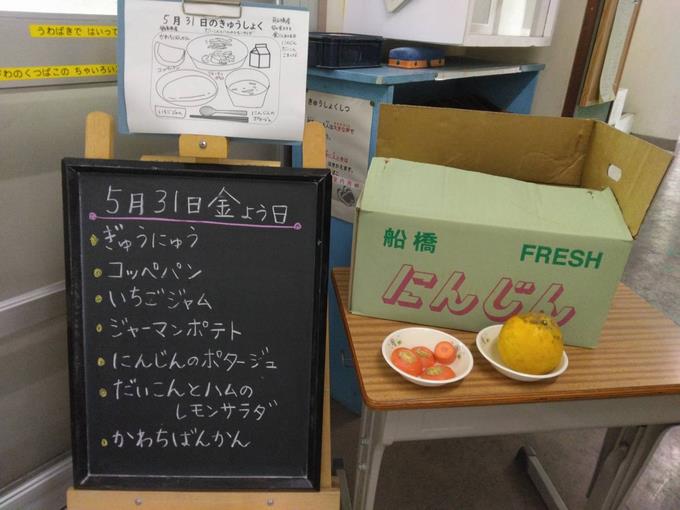 うわばきで はいって
わのくつばこの ちゃいろい
5月31日のきゅうしょく
かわちばんかん
コッペパン
いちごジャム
にんじんの
きゅうしょくしつ
5月31日金よう日
ぎゅうにゅう
コッペパン
いちごジャム
ジャーマンポテト
にんじんのポタージュ
だいこんとハムの
レモンサラダ
かわちばんかん
船橋
FRESH
にんじん